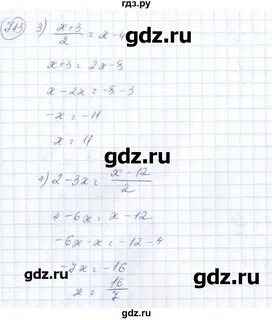 gdz.ru
gdz.ru
3) x+3/2 = x-4
x+3 = 2x-8
x-2x = -8-3
-x = -11
x = 11
gdz.ru
gdz.ru
4) 2-3x = x-12/2
4-6x = x-12
-6x-x = -12-4
-7x = -16
x = 16/7
gdz.ru
gdz.ru